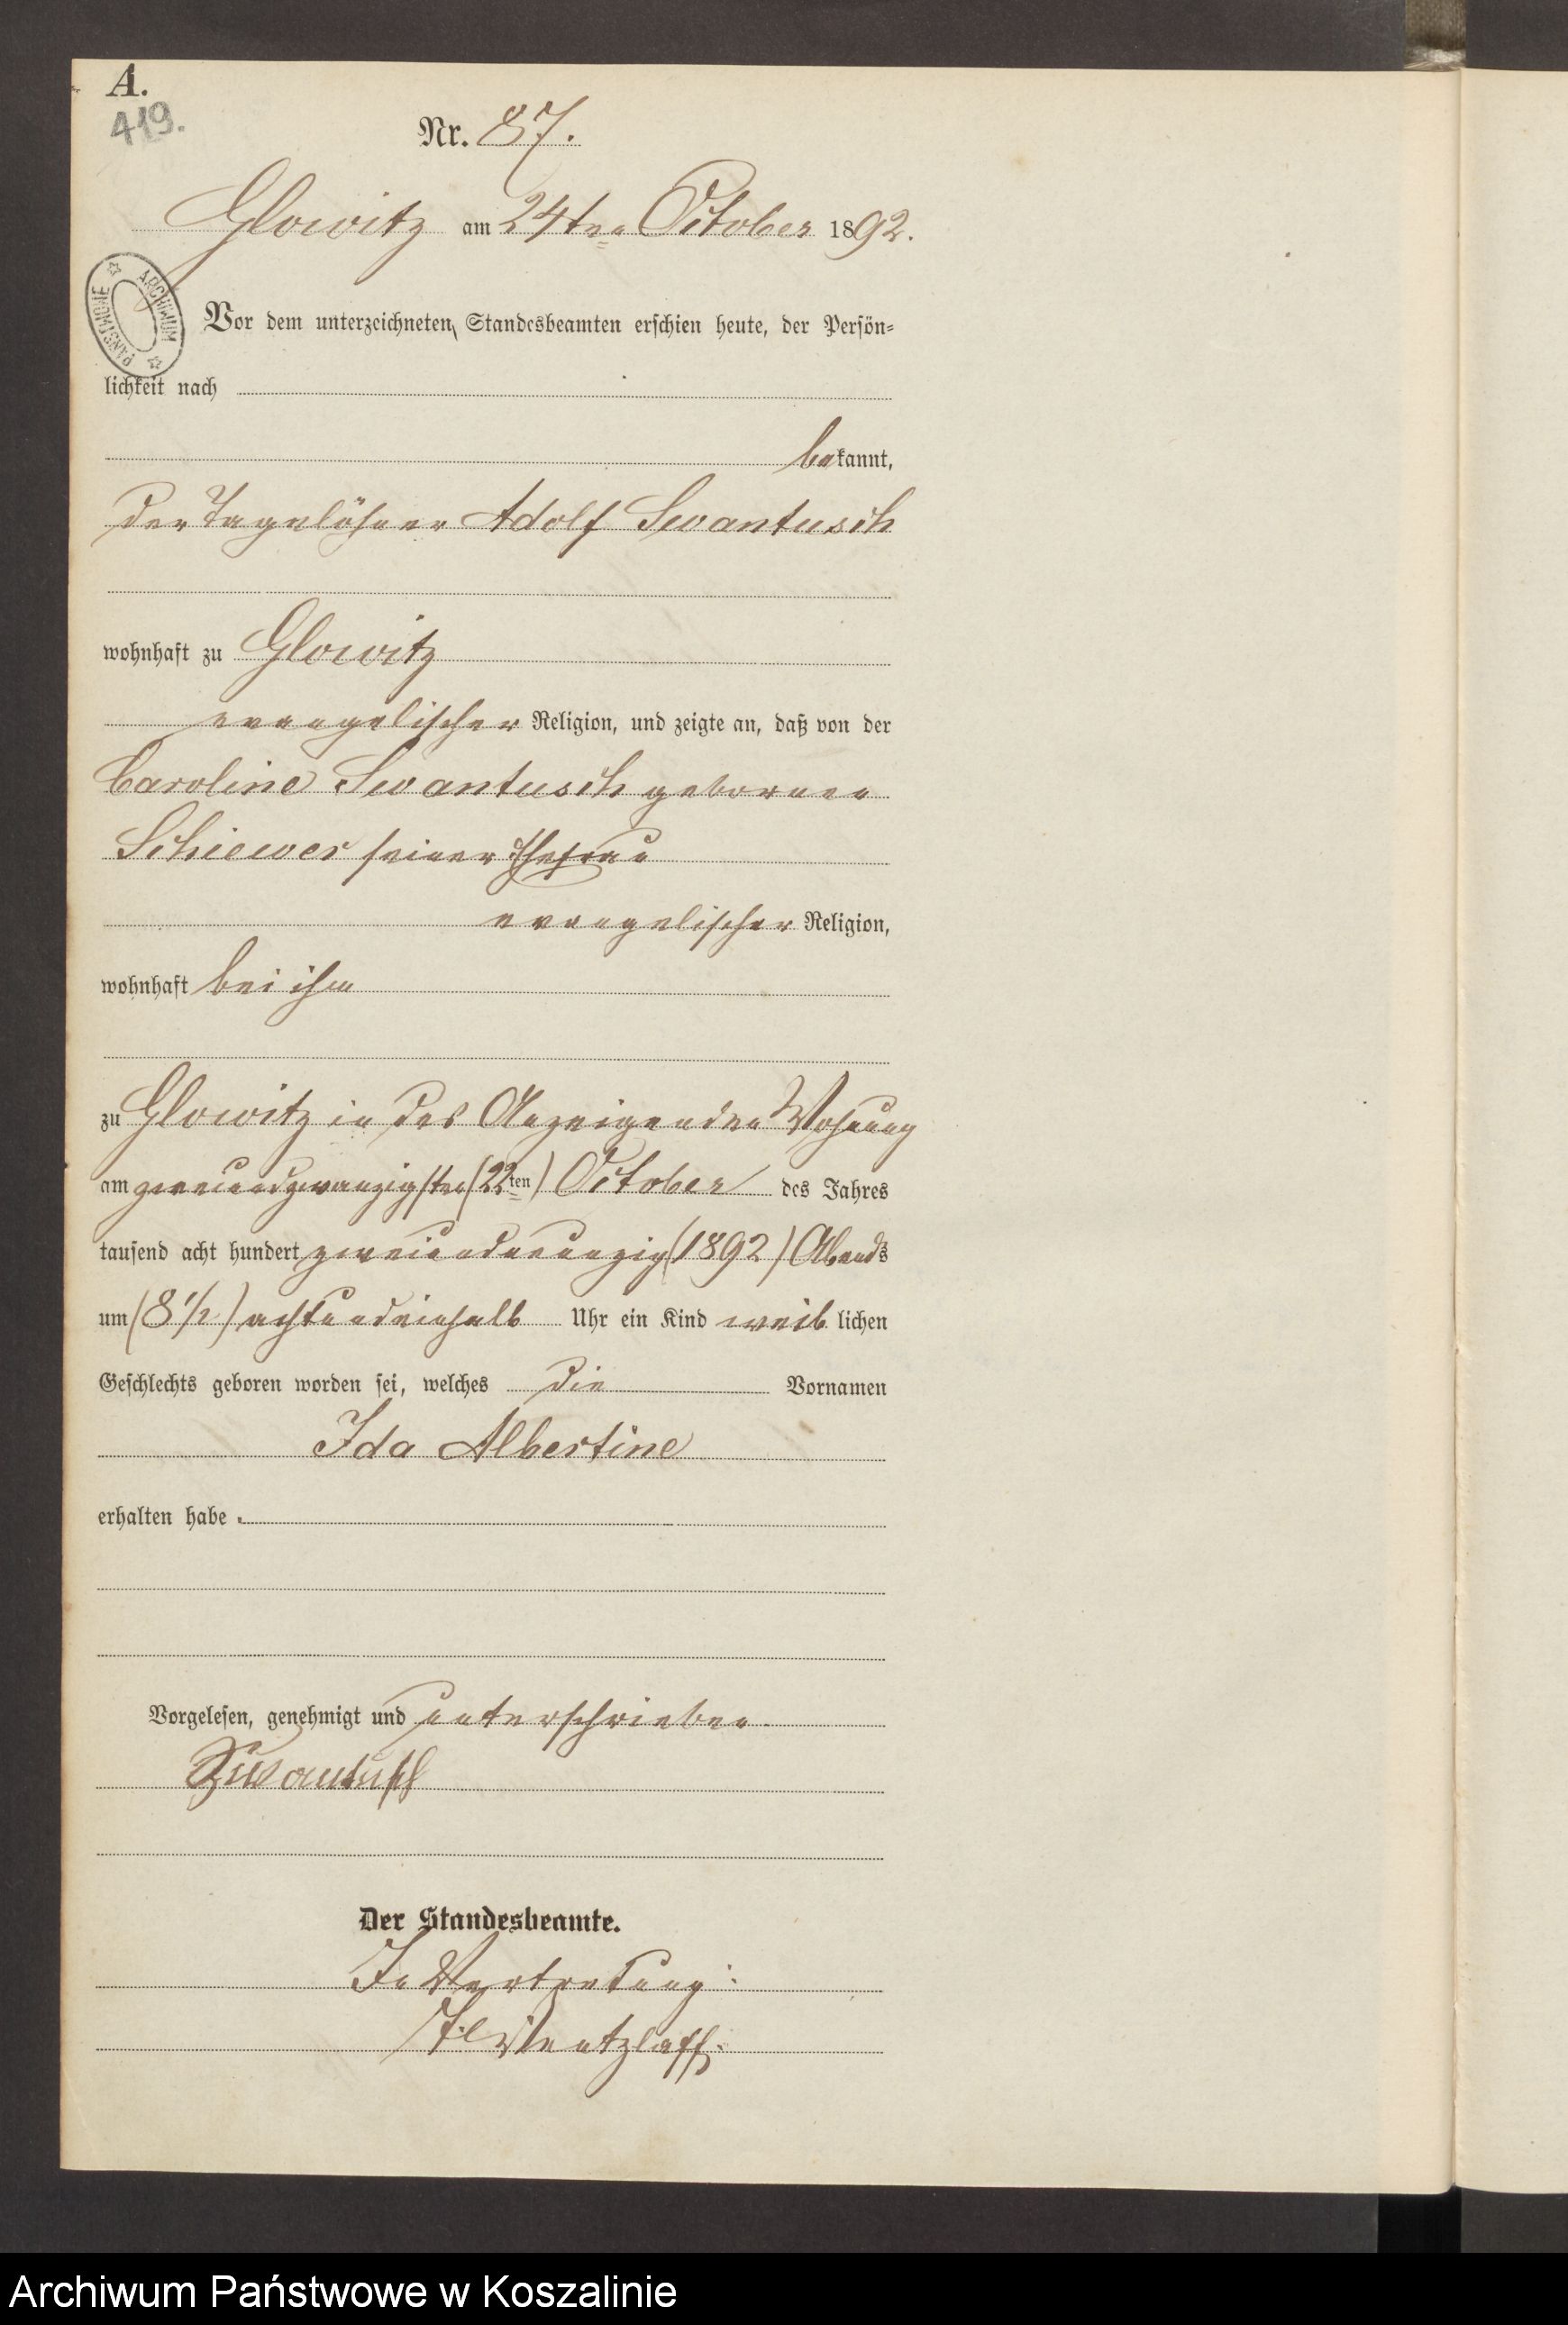 A.
419.
Nr. 87.
Glowitz am 24ten October 1892.
ARCHIWUM PAŃSTWOWE
Vor dem unterzeichneten Standesbeamten erschien heute, der Persön=
lichkeit nach
bekannt,
der Tagelöhner Adolf Swantusch
wohnhaft zu Glowitz
evangelischer Religion, und zeigte an, daß von der
Caroline Swantusch gebornen
Schiewer seiner Ehefrau
evangelischer Religion,
wohnhaft bei ihm
zu Glowitz in des Anzeigenden Wohnung
am zweiundzwanzigsten (22ten) October des Jahres
tausend acht hundert zweiundneunzig (1892) Abends
um (8 1/2) achtundeinhalb Uhr ein Kind weiblichen
Geschlechts geboren worden sei, welches die Vornamen
Ida Albertine
erhalten habe.
Vorgelesen, genehmigt und unterschrieben
Swantusch
Der Standesbeamte.
In Vertretung:
Wentzlaff.
Archiwum Państwowe w Koszalinie